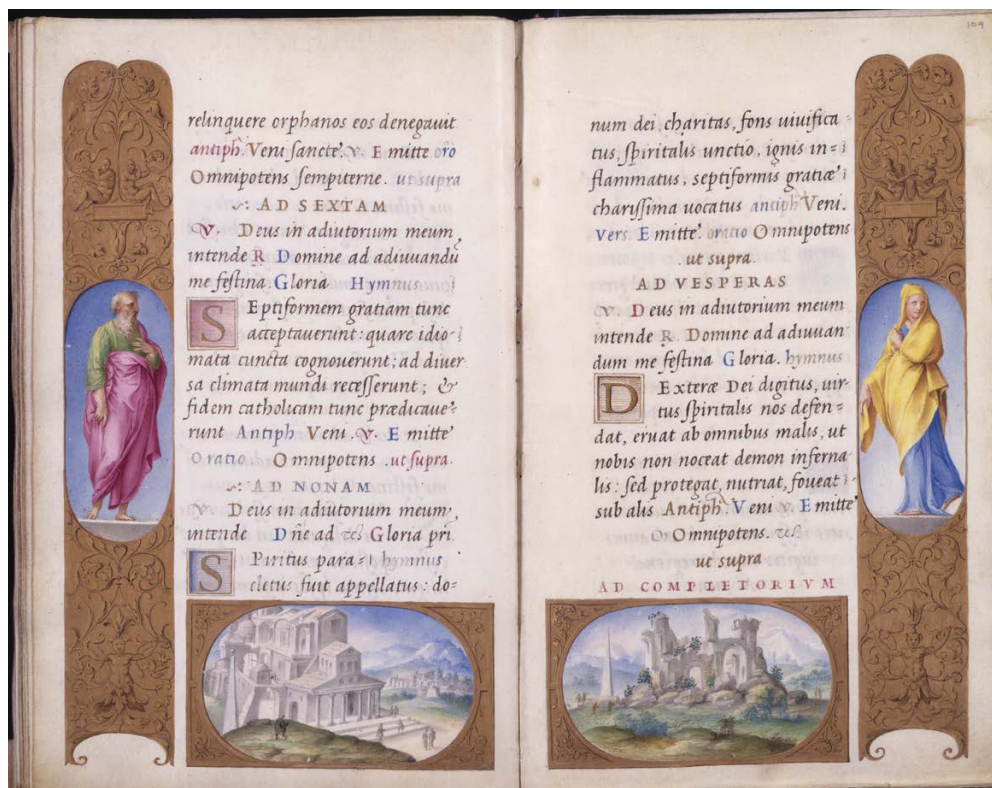 relinquere orphanos eos denegauit
antiph. Veni sancte. V. Emitte oro
Omnipotens sempiterne. ut supra
AD SEXTAM
V. Deus in adiutorium meum
intende R Domine ad adiuuandũ
me festina. Gloria Hymnus
SEptiformem gratiam tunc
acceptauerunt: quare idio-
mata cuncta cognouerunt; ad diuer
sa climata mundi recesserunt; &
fidem catholicam tunc prædicaue-
runt Antiph Veni. V. Emitte
Oratio Omnipotens. ut supra.
AD NONAM
V. Deus in adiutorium meum,
intende Dñe ad &c Gloria pri.
SPiritus para= hymnus
cletus fuit appellatus: do-
104
num dei, charitas, fons uiuifica-
tus, spiritalis unctio, ignis in=
flammatus, septiformis gratiæ
charissima uocatus antiph Veni.
Vers Emitte. oratio Omnipotens
ut supra.
AD VESPERAS
V. Deus in adiutorium meum
intende R. Domine ad adiuuan
dum me festina Gloria. hymnus
DExteræ Dei digitus, uir-
tus spiritalis nos defen=
dat, eruat ab omnibus malis, ut
nobis non noceat demon inferna
lis: sed protegat, nutriat, foueat
sub alis Antiph. Veni V. Emitte
O Omnipotens. &c
ut supra
AD COMPLETORIVM